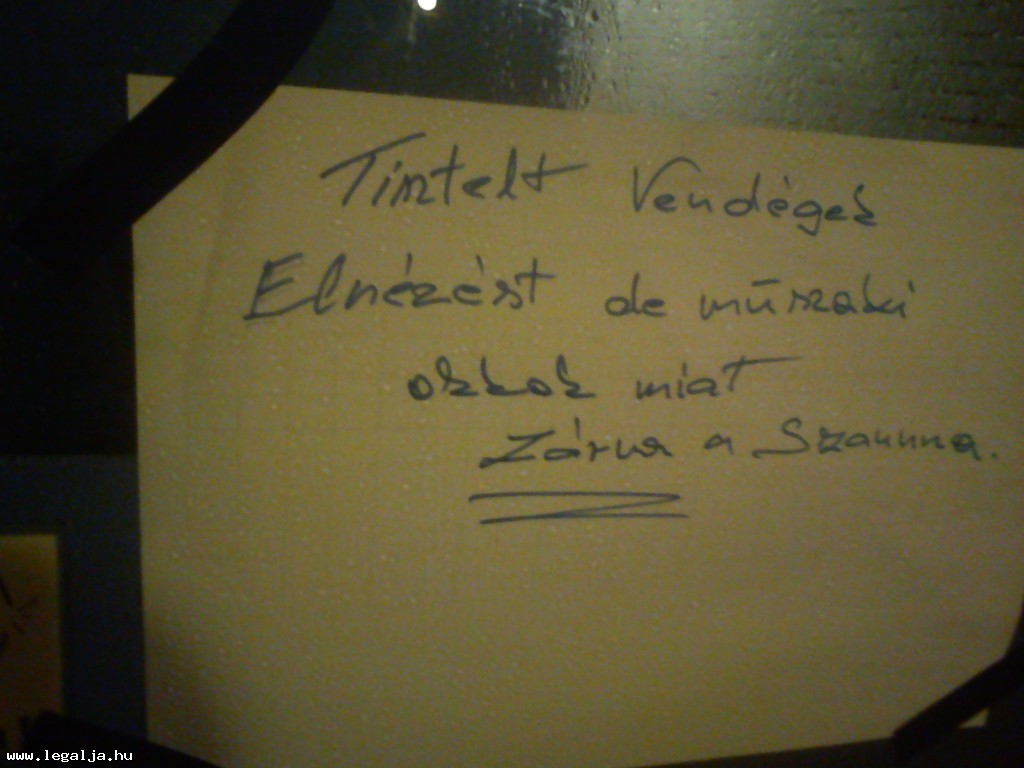 Tintelt Vendégek
Elnézést de műszaki
okkok miat
Zárva a Szaunna.
www.legalja.hu